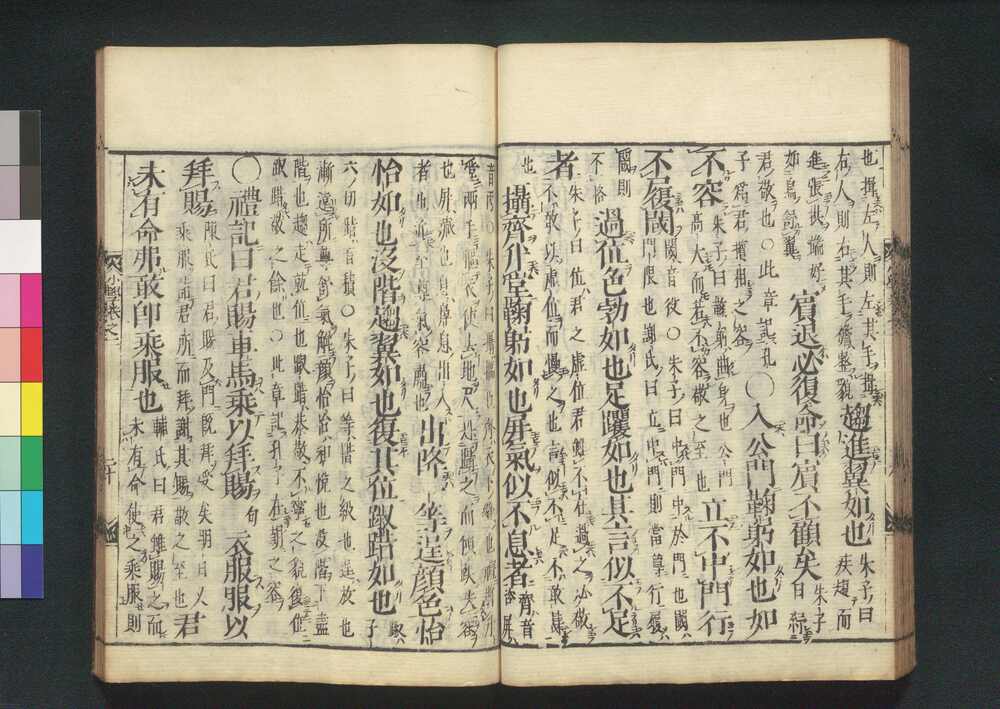 也揖左人則左其手揖
右人則右其手襜整貌
趨進翼如也
朱子曰
疾趨而
進張拱端好
如鳥舒翼
賓退必復命曰賓不顧矣
朱子
曰紓
君敬也○此章記孔
子爲君擯相之容
○入公門鞠躬如也如
不容
朱子曰鞠躬曲身也公門
高大而若不容敬之至也
立不中門行
不履閾
閾音役○朱子曰中門中於門也閾
門限也謝氏曰立中門則當尊行履
閾則
不恪
過位色勃如也足躩如也其言似不足
者
朱子曰位君之虛位君雖不在過之必敬
不敢以虛位而慢之也言似不足不敢肆
也
攝齊升堂鞠躬如也屏氣似不息者
齊音
咨屏
音丙○朱子曰攝摳也齊衣下縫也禮將升
堂兩手摳衣使去地尺恐躡之而傾跌失容
也屏藏也息鼻息出入
者也近至尊氣容肅也
出降一等逞顏色怡
怡如也沒階趨翼如也復其位踧踖如也
踧
子
六切踖音積○朱子曰等階之級也逞放也
漸遠所尊舒氣解顏怡怡和悅也沒階下盡
階也趨走就位也踧踖恭敬不寧之貌復位
踧踖敬之餘也○此章記孔子在朝之容
○禮記曰君賜車馬乘以拜賜句衣服服以
拜賜
陳氏曰君賜及門既拜受矣明日又
乘服詣君所而拜謝其賜敬之至也
君
未有命弗敢即乘服也
輔氏曰君雖賜之而
未有命使之乘服則